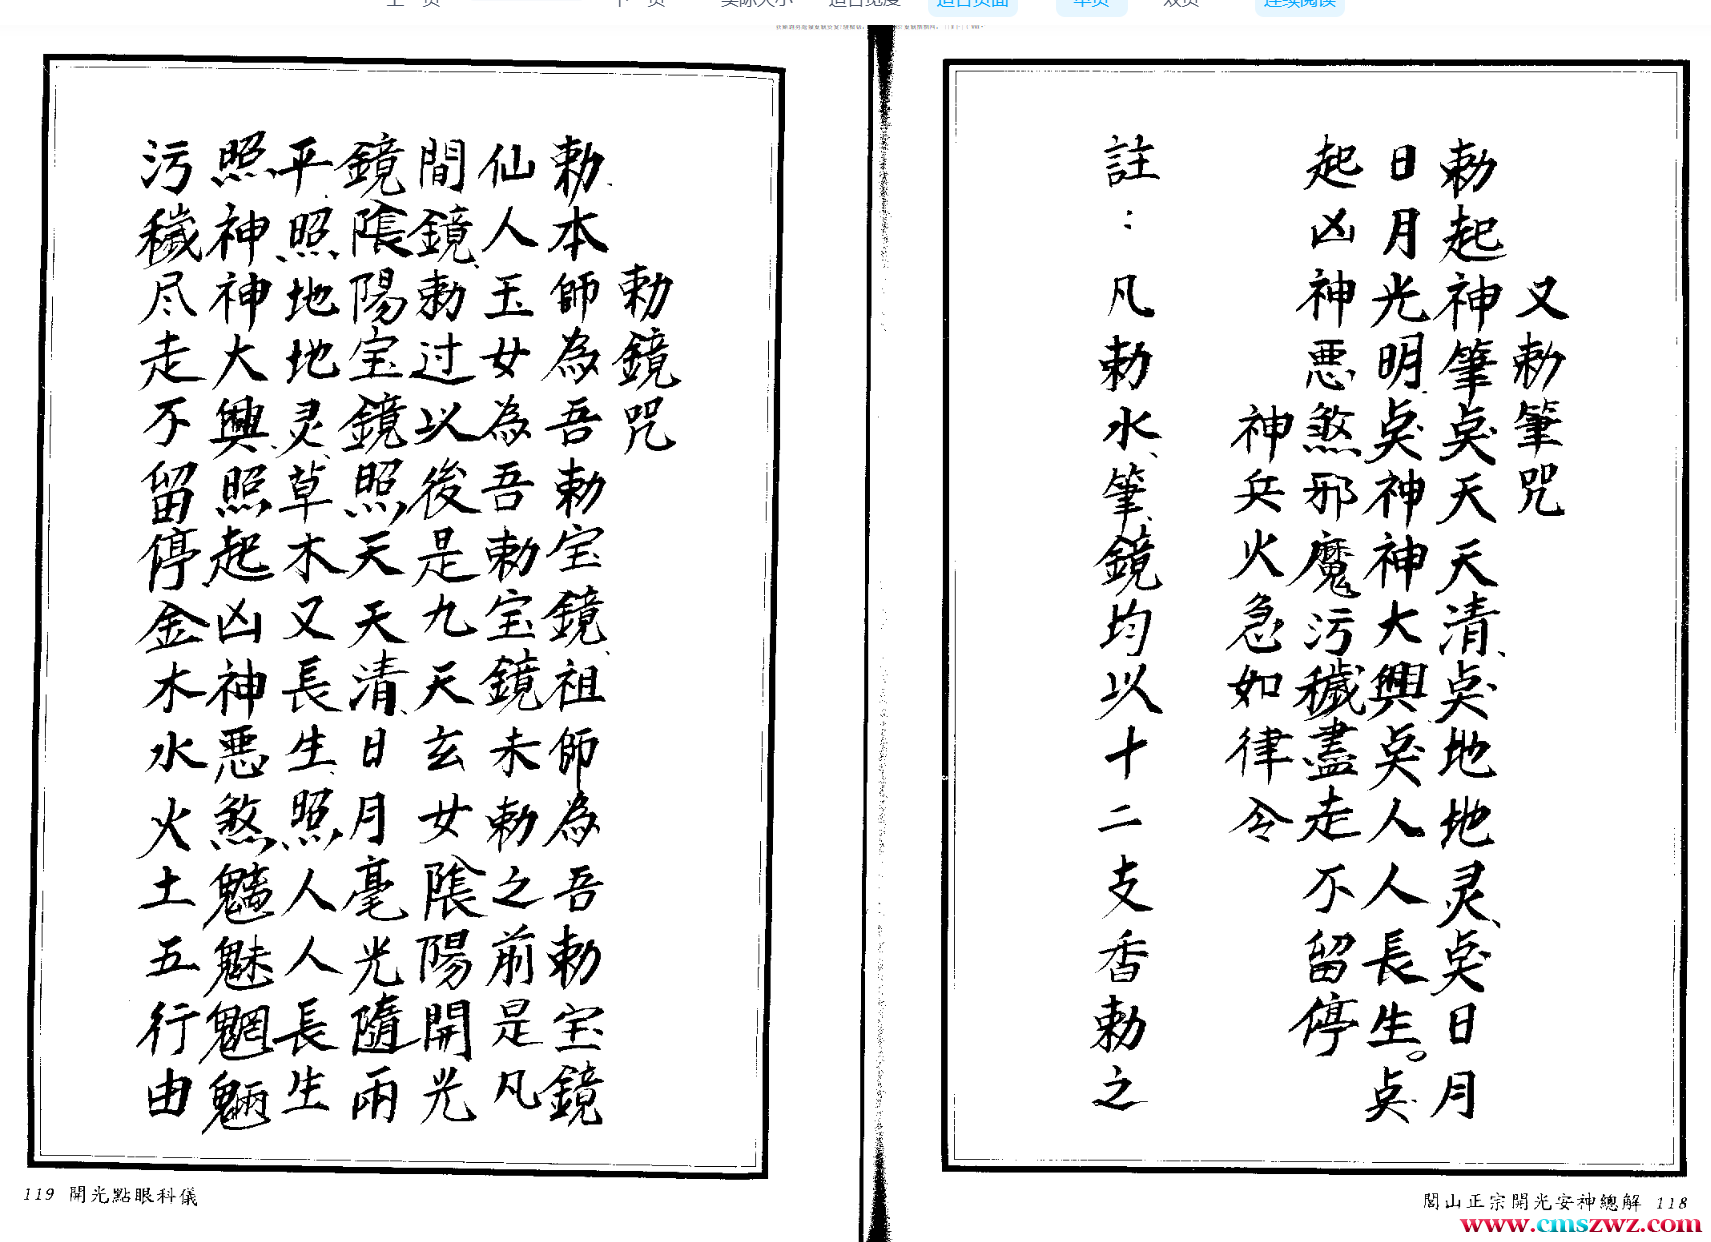 上一页 下一页 实际大小 适合宽度 适合页面 单页 双页 连续阅读
又勅筆咒
勅起神筆奌天天清、奌地地灵、奌日月
日月光明、奌神神大興、奌人人長生。奌
起凶神悪煞邪魔污穢盡走不留停
神兵火急如律令
註：凡勅水、筆、鏡均以十二支香勅之
閭山正宗開光安神總解 118
www.cmszwz.com
勅鏡咒
勅、本師為吾勅宝鏡、祖師為吾勅宝鏡
仙人玉女為吾勅宝鏡未勅之前是凡
間鏡、勅过以後是九天玄女陰陽開光
鏡陰陽宝鏡照天天清、日月毫光隨兩
平、照地地灵、草木又長生、照人人長生
照神神大興、照起凶神悪煞魑魅魍魎
污穢尽走不留停金木水火土五行由
119 開光點眼科儀